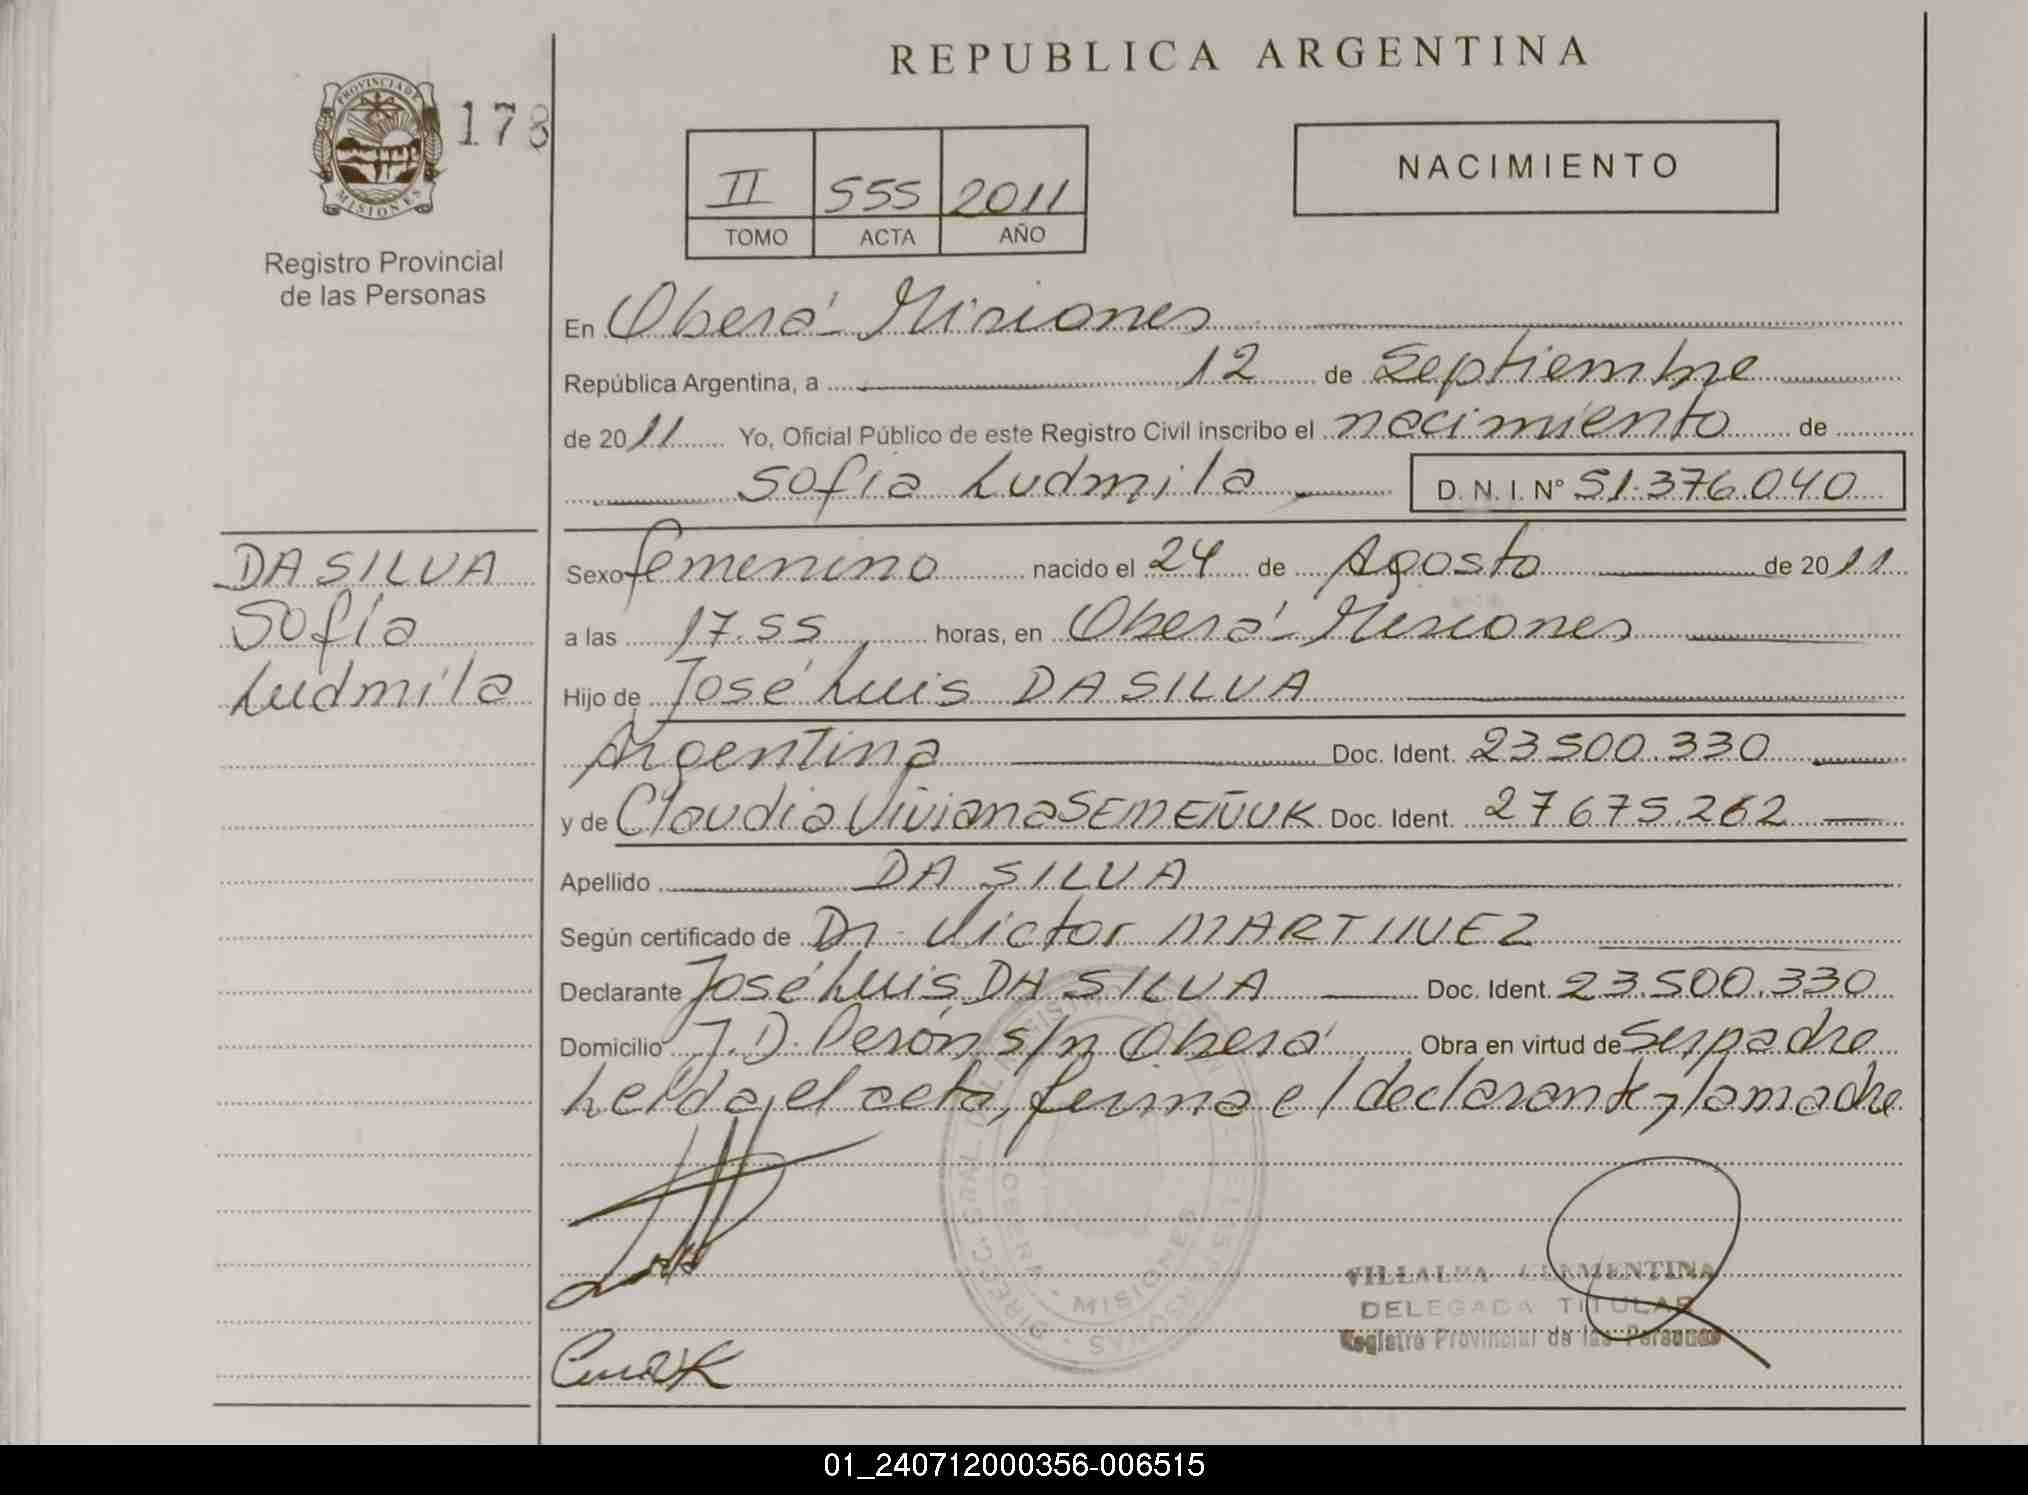 REPUBLICA ARGENTINA
PROVINCIA DE
MISIONES
178
Registro Provincial
de las Personas
II 555 2011
TOMO ACTA AÑO
NACIMIENTO
En Oberá - Misiones
República Argentina, a 12 de Septiembre
de 2011 Yo, Oficial Público de este Registro Civil inscribo el nacimiento de
Sofía Ludmila D. N. I. Nº 51.376.040
DA SILVA
Sofía
Ludmila
Sexo femenino nacido el 24 de Agosto de 2011
a las 17.55 horas, en Oberá - Misiones
Hijo de José Luis DA SILVA
Argentina Doc. Ident. 23.500.330
y de Claudia Viviana SEMEÑUK Doc. Ident. 27.675.262
Apellido DA SILVA
Según certificado de Dr. Victor MARTINEZ
Declarante José Luis DA SILVA Doc. Ident. 23.500.330
Domicilio J.D. Perón s/n Oberá Obra en virtud de Ser padre
Leída el acta, firma el declarante y la madre
VILLALBA CLEMENTINA
DELEGADA TITULAR
Registro Provincial de las Personas
DIREC. GRAL. DEL REGISTRO PROV. DE LAS PERSONAS
OBERA - MISIONES
01_240712000356-006515